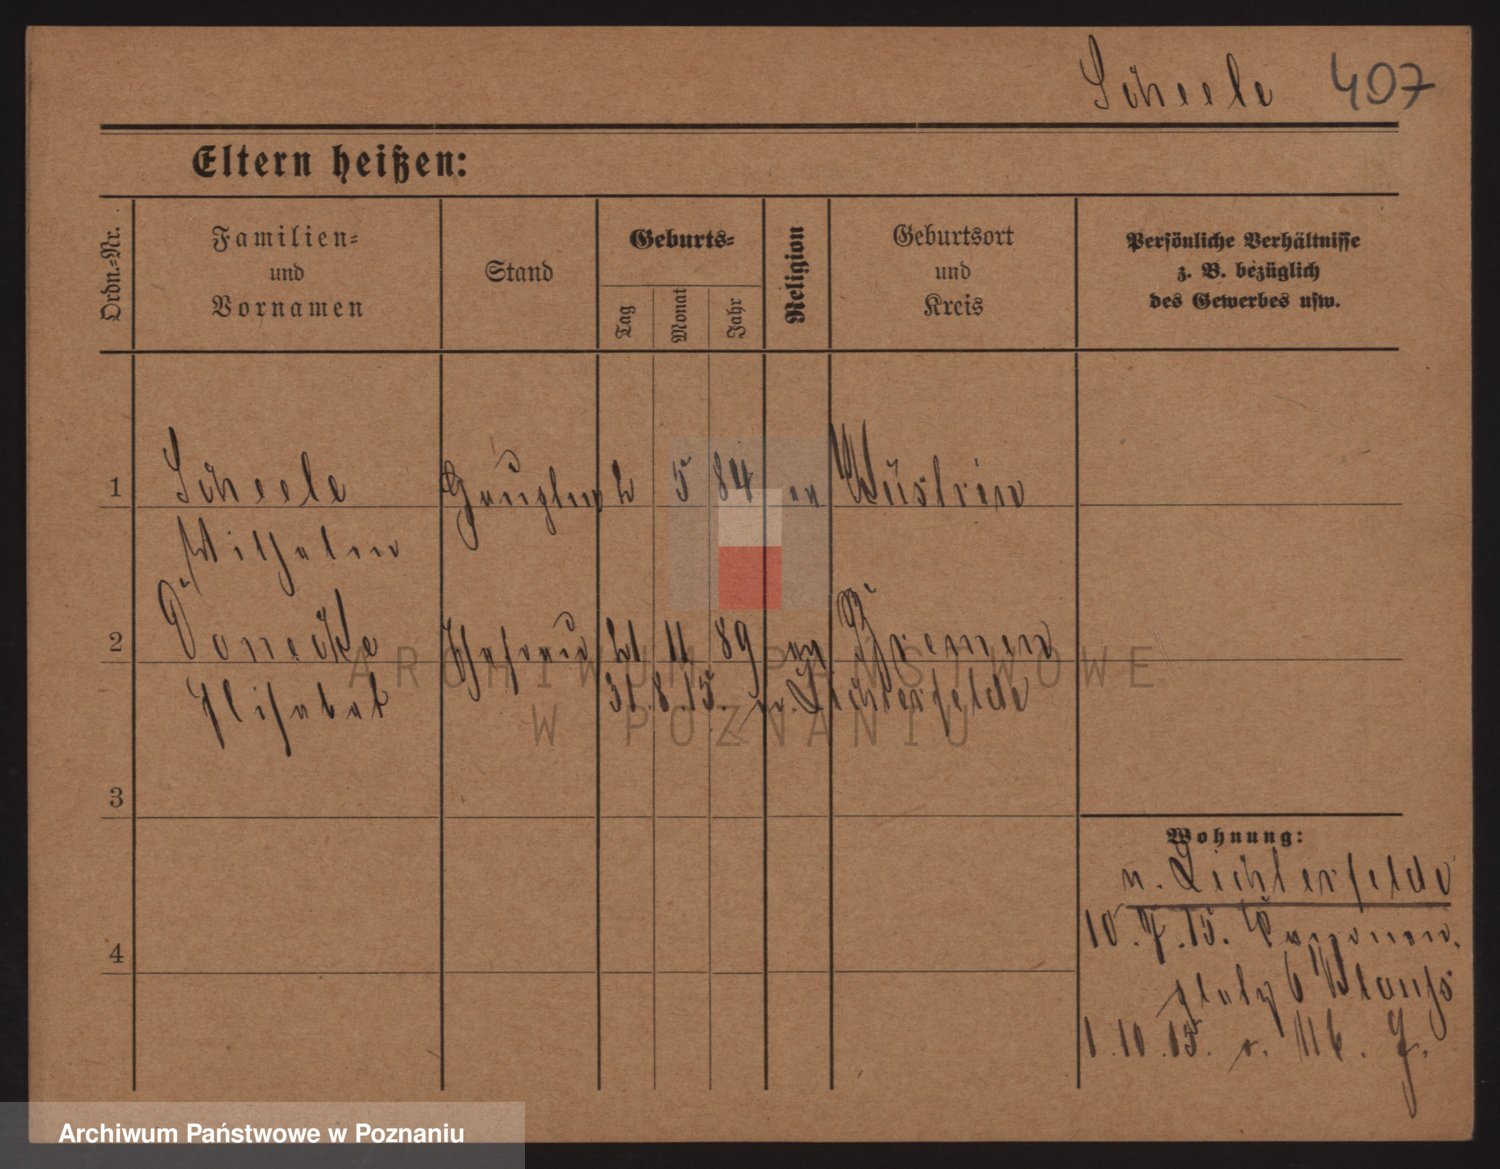 Scheele 407
Eltern heißen:
Ordn.-Nr.
Familien-
und
Vornamen
Stand
Geburts-
Tag
Monat
Jahr
Religion
Geburtsort
und
Kreis
Persönliche Verhältnisse
z. B. bezüglich
des Gewerbes usw.
1 Scheele 2 5 84 ev Wüstrin
Wilhelm
2 Donecke Ehefrau 21 11 89 ev Bremen
Elisabet 31.8.15. n. Lichterfelde
3
4
Wohnung:
n. Lichterfelde
10.7.15.
platz 6
1.10.15. v. M6. J.
ARCHIWUM PAŃSTWOWE
W POZNANIU
Archiwum Państwowe w Poznaniu